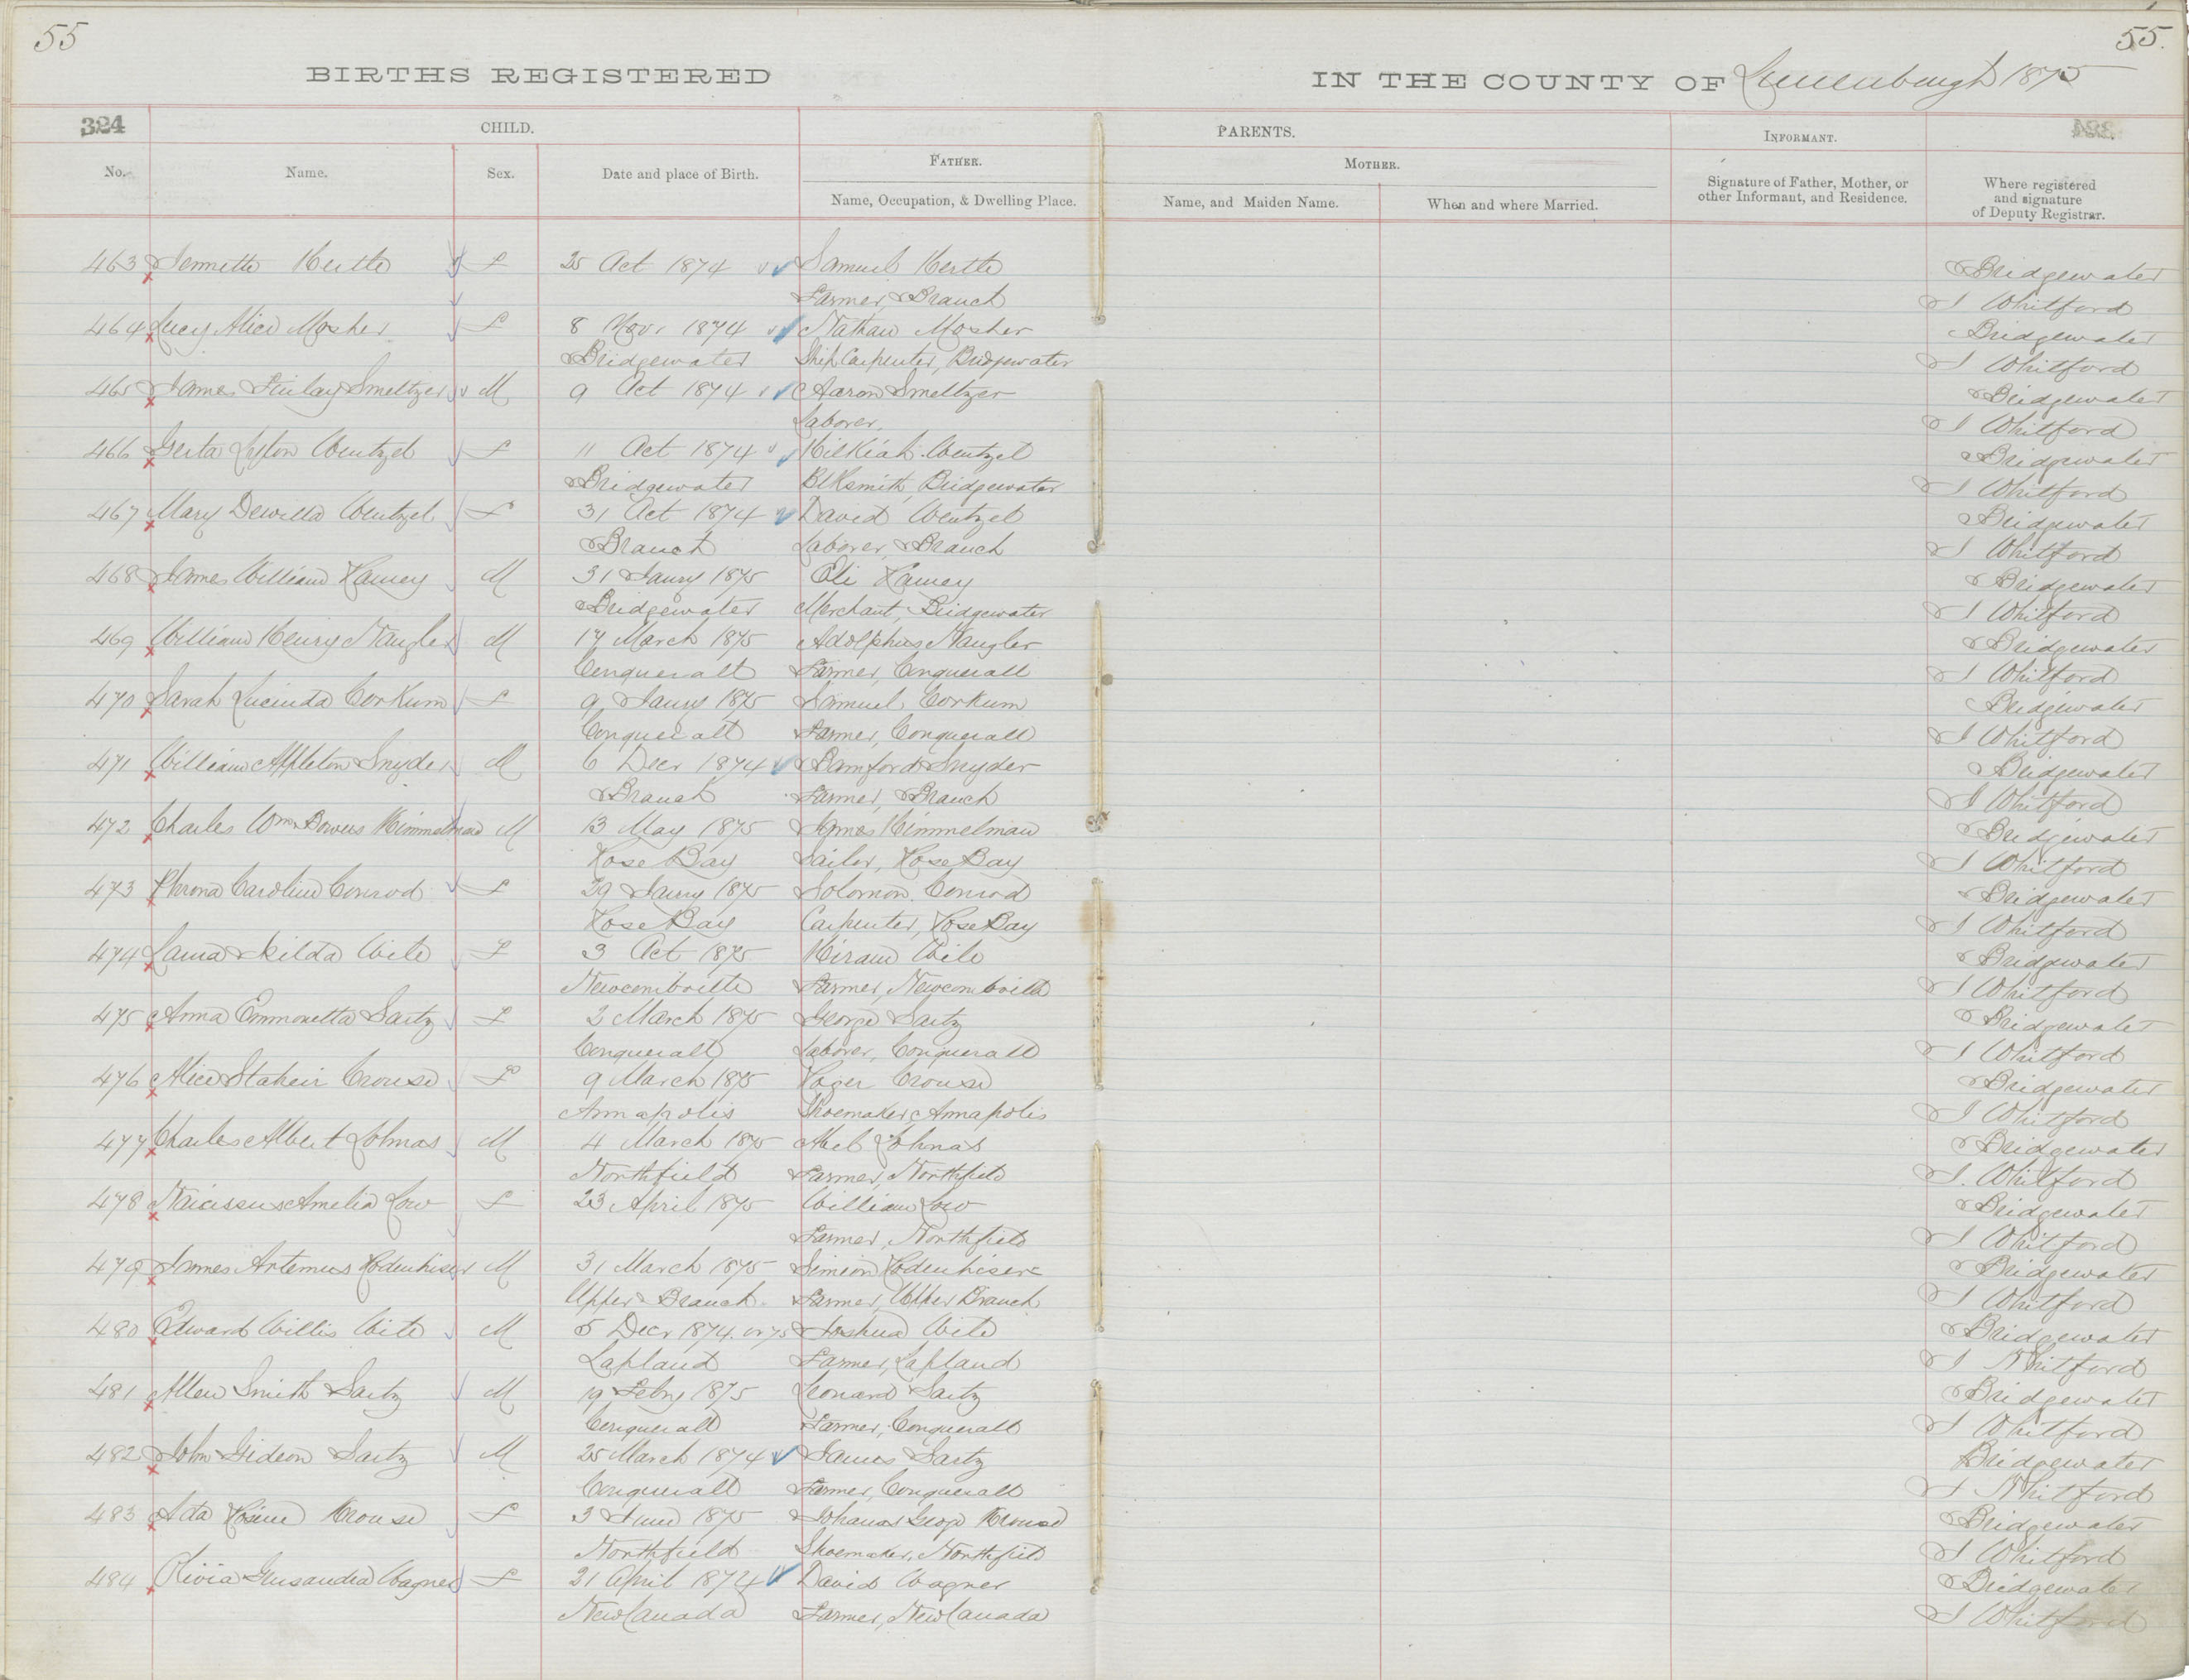 55
55.
BIRTHS REGISTERED IN THE COUNTY OF Lunenburgh 1875
324 CHILD. PARENTS. INFORMANT.
FATHER. MOTHER.
No. Name. Sex. Date and place of Birth. Name, Occupation, & Dwelling Place. Name, and Maiden Name. When and where Married. Signature of Father, Mother, or other Informant, and Residence. Where registered and signature of Deputy Registrar.
463 Jennette Hertle F 25 Oct 1874 Samuel Hertle Bridgewater
Farmer, Branch J Whitford
464 Lucy Alice Mosher F 8 Novr 1874 Nathan Mosher Bridgewater
Bridgewater Ship Carpenter, Bridgewater J Whitford
465 James Finlay Smeltzer M 9 Oct 1874 Aaron Smeltzer Bridgewater
Laborer, J Whitford
466 Wentzel F 11 Oct 1874 Hilkiah Wentzel Bridgewater
Bridgewater Blksmith Bridgewater J Whitford
467 Mary Dewilla Wentzel F 31 Oct 1874 David Wentzel Bridgewater
Branch Laborer, Branch J Whitford
468 James William Ramey M 31 Jany 1875 Eli Ramey Bridgewater
Bridgewater Merchant, Bridgewater J Whitford
469 William Henry Naugler M 17 March 1875 Adolphus Naugler Bridgewater
Conquerall Farmer, Conquerall J Whitford
470 Sarah Lucinda Corkum F 9 Jany 1875 Samuel Corkum Bridgewater
Conquerall Farmer, Conquerall J Whitford
471 William Appleton Snyder M 6 Decr 1874 Bamford Snyder Bridgewater
Branch Farmer, Branch J Whitford
472 Charles Wm Bowers Himmelman M 13 May 1875 James Himmelman Bridgewater
Rose Bay Sailor, Rose Bay J Whitford
473 Caroline Conrod F 29 Jany 1875 Solomon Conrod Bridgewater
Rose Bay Carpenter, Rose Bay J Whitford
474 Laura Wile F 3 Oct 1875 Hiram Wile Bridgewater
Newcombville Farmer, Newcombville J Whitford
475 Anna Emmonetta Sartz F 2 March 1875 George Sartz Bridgewater
Conquerall Laborer, Conquerall J Whitford
476 Alice Crouse F 9 March 1875 Crouse Bridgewater
Annapolis Shoemaker, Annapolis J Whitford
477 Charles Albert Lohnas M 4 March 1875 Abel Lohnas Bridgewater
Northfield Farmer, Northfield J. Whitford
478 Narcissus Amelia Low F 23 April 1875 William Low Bridgewater
Farmer, Northfield J Whitford
479 James Artemus Rodenhiser M 31 March 1875 Simeon Rodenhiser Bridgewater
Upper Branch Farmer, Upper Branch J Whitford
480 Edward Willis Wile M 5 Decr 1874. or 75 Joshua Wile Bridgewater
Lapland Farmer, Lapland J Whitford
481 Allen Smith Sartz M 19 Febry 1875 Leonard Sartz Bridgewater
Conquerall Farmer, Conquerall J Whitford
482 John Gideon Sartz M 25 March 1874 James Sartz Bridgewater
Conquerall Farmer, Conquerall J Whitford
483 Ada Krouse F 3 June 1875 Krouse Bridgewater
Northfield Shoemaker, Northfield J Whitford
484 Olivia Wagner F 21 April 1874 David Wagner Bridgewater
New Canada Farmer, New Canada J Whitford